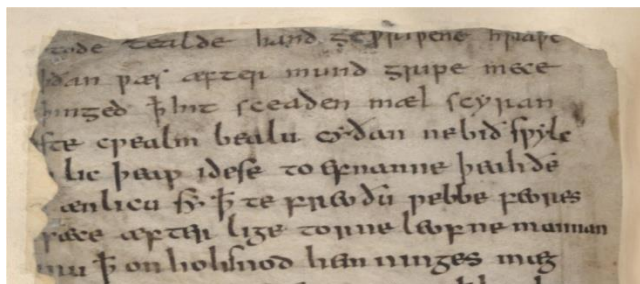 tode tealde hand geƿriþene hraþe
ðan ƿæs æfter mund gripe mece
þinged ꝥ hit sceaden mæl scyran
ste cƿealm bealu cyðan ne bið sƿylc
lic þeaƿ idese to efnanne þeahðe
ænlicu sy ꝥ te freoðu ƿebbe feores
sæce æfter lige torne leofne mannan
ꝥ on hohsnod hem ninges mæg